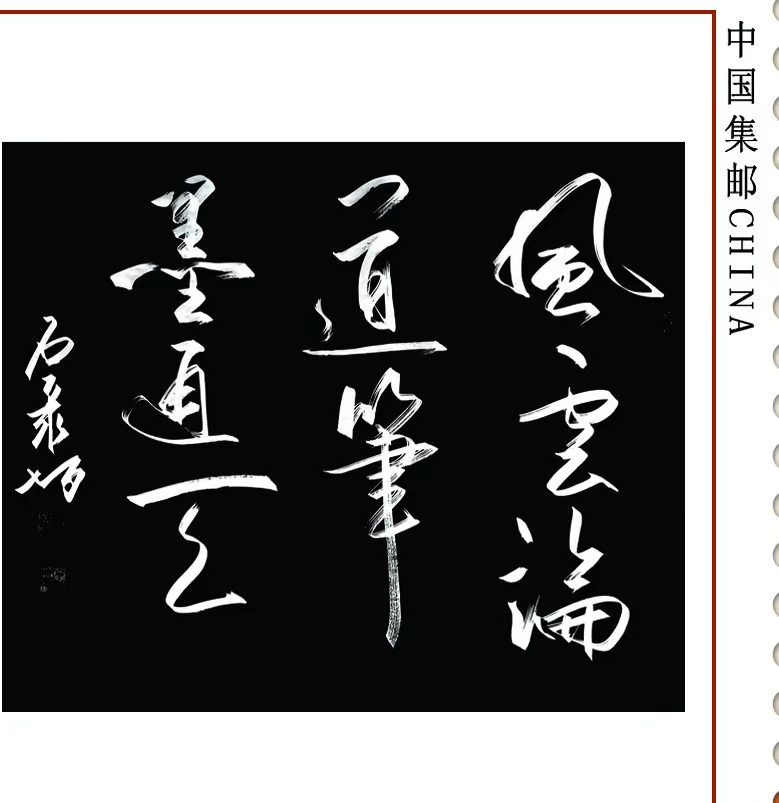 中国集邮CHINA
風雲論
道筆
墨通天